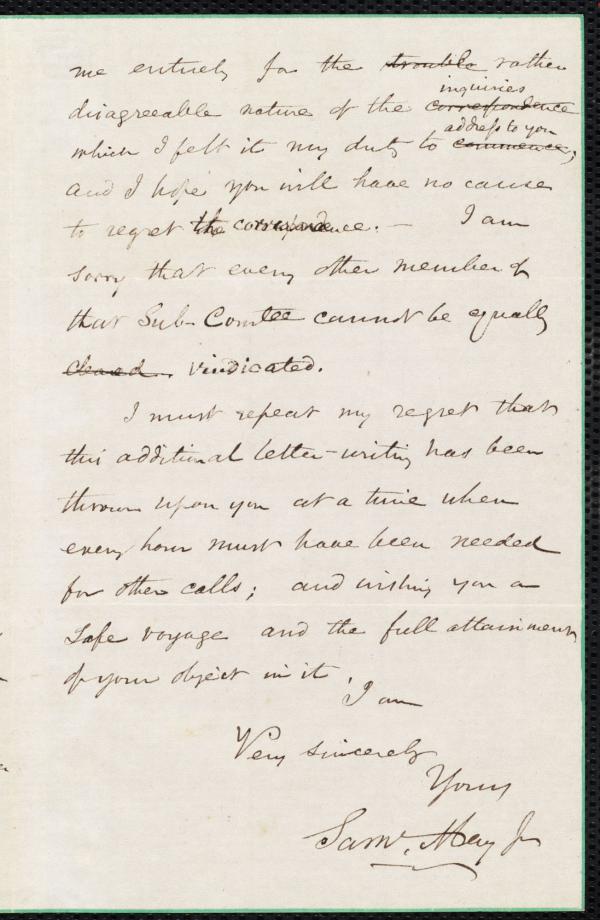 me entirely for the trouble rather
inquiries
disagreeable nature of the correspondence
address to you
which I felt it my duty to commence,
and I hope you will have no cause
to regret the correspondence. — I am
sorry that every other member of
that Sub-Comtee cannot be equally
cleared. vindicated.
I must repeat my regret that
this additional letter-writing has been
thrown upon you at a time when
every hour must have been needed
for other calls; and wishing you a
safe voyage and the full attainment
of your object in it,
I am
Very sincerely
Yours
Saml. May Jr